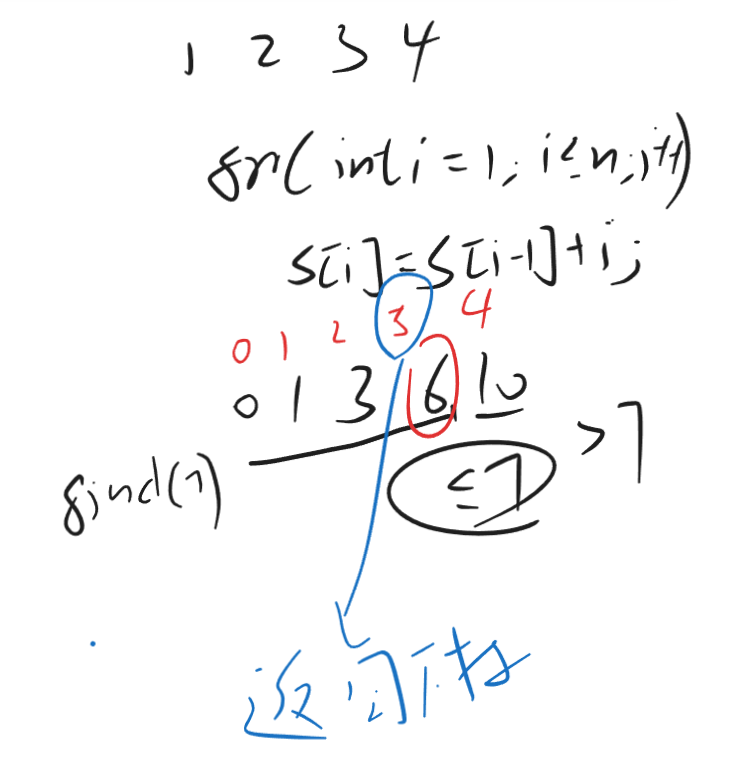 1 2 3 4
for(int i=1; i≤n; i++)
s[i]=s[i-1]+i;
0 1 2 3 4
0 1 3 6 10
find(7) ≤7 >7
返回下标